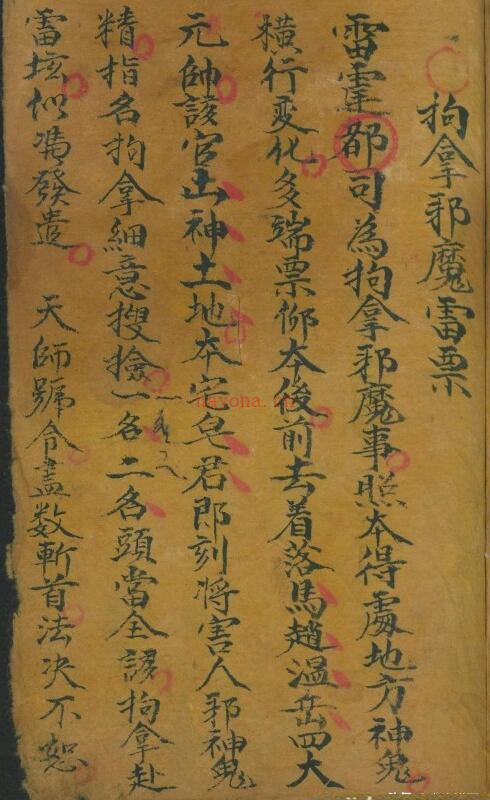 拘拿邪魔雷票
雷霆都司為拘拿邪魔事照本得處地方神鬼
橫行变化多端票仰本後前去着落馬趙温岳四大
元帥該官山神土地本宅皂君即刻将害人邪神鬼
精指名拘拿細意搜撿一名二名頭當全諺拘拿赴
雷垓似馮發遣 天師號令盡数斬首法决不恕
nayona.